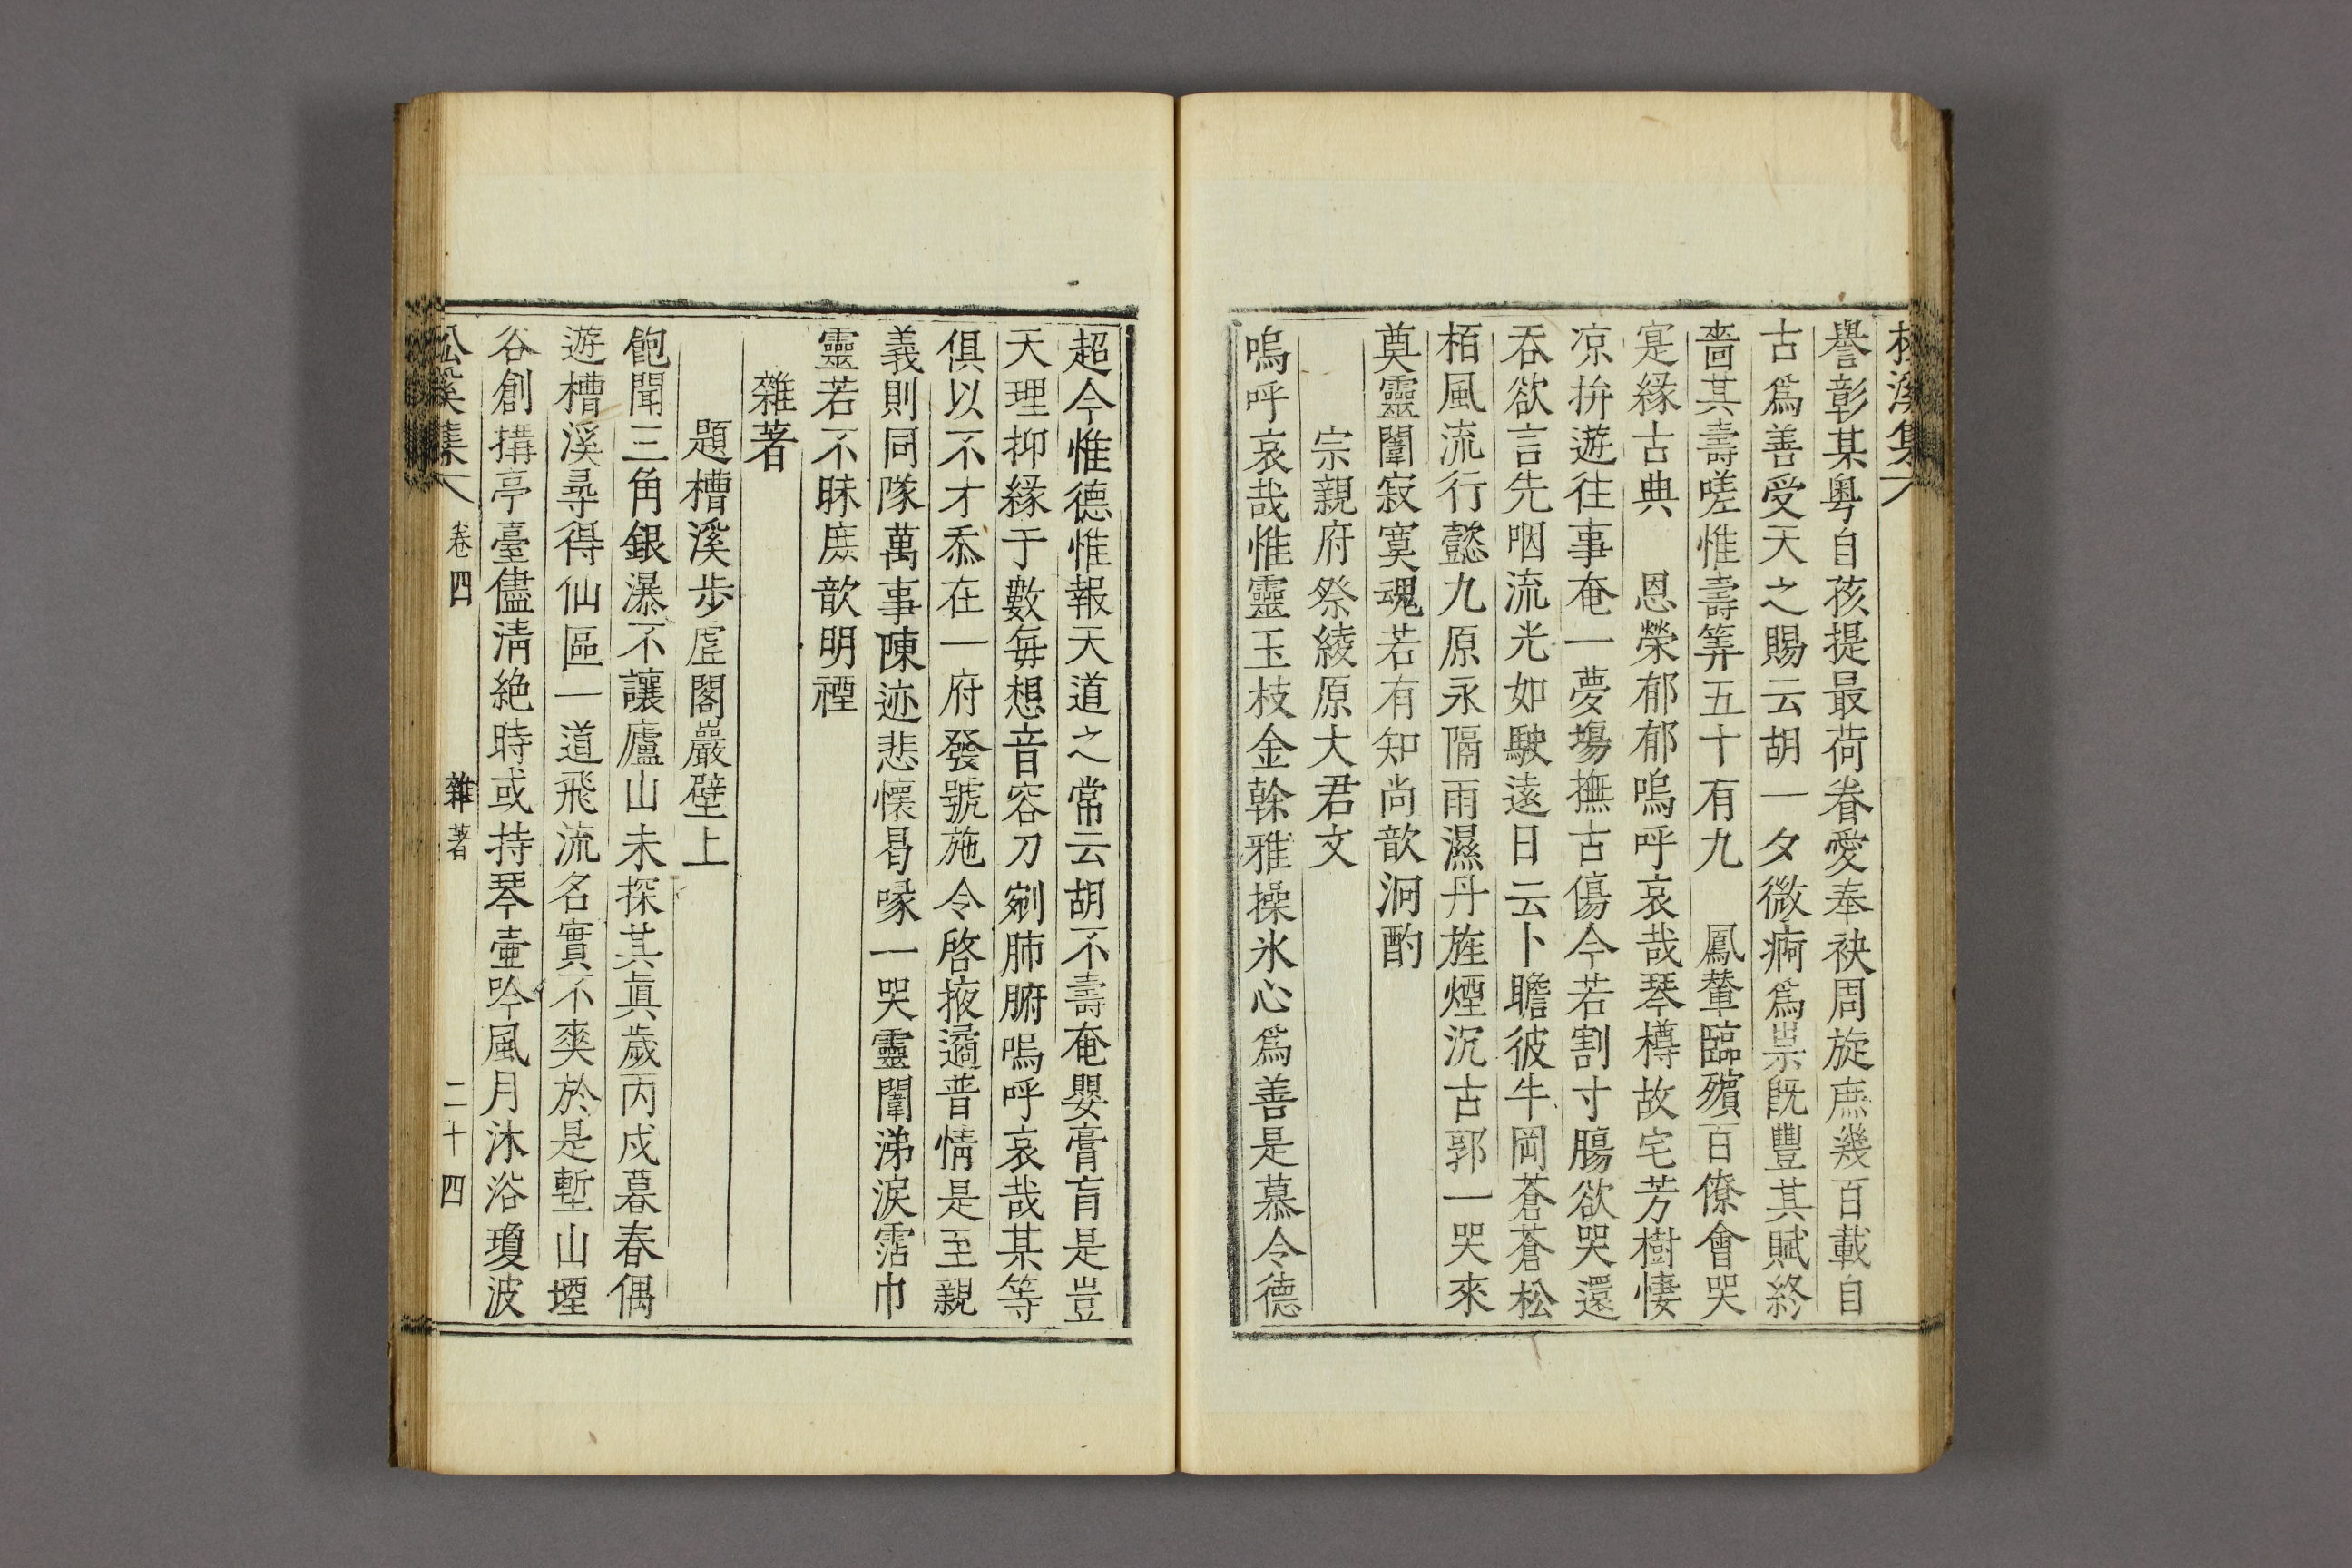 松溪集
譽彰某粤自孩提最荷眷愛奉袂周旋庶幾百載自
古爲善受天之賜云胡一夕微痾爲祟旣豐其賦終
嗇其壽嗟惟壽筭五十有九 鳳輦臨殯百僚會哭
寔緣古典 恩榮郁郁嗚呼哀哉琴樽故宅芳樹悽
凉拚遊往事奄一夢塲撫古傷今若割寸腸欲哭還
吞欲言先咽流光如駛遠日云卜瞻彼牛岡蒼蒼松
栢風流行懿九原永隔雨濕丹旌煙沉古郭一哭來
奠靈闈寂寞魂若有知尚歆泂酌
宗親府祭綾原大君文
嗚呼哀哉惟靈玉枝金榦雅操氷心爲善是慕令德
超今惟德惟報天道之常云胡不壽奄嬰膏肓是豈
天理抑緣于數每想音容刀剜肺腑嗚呼哀哉某等
俱以不才忝在一府發號施令啓掖過普情是至親
義則同隊萬事陳迹悲懷曷喙一哭靈闈涕淚霑巾
靈若不昧庶歆明禋
雜著
題槽溪步虛閣巖壁上
飽聞三角銀瀑不讓廬山未探其眞歲丙戌暮春偶
遊槽溪尋得仙區一道飛流名實不爽於是塹山堙
谷創搆亭臺儘淸絶時或持琴壷吟風月沐浴瓊波
松溪集 卷四 雜著 二十四